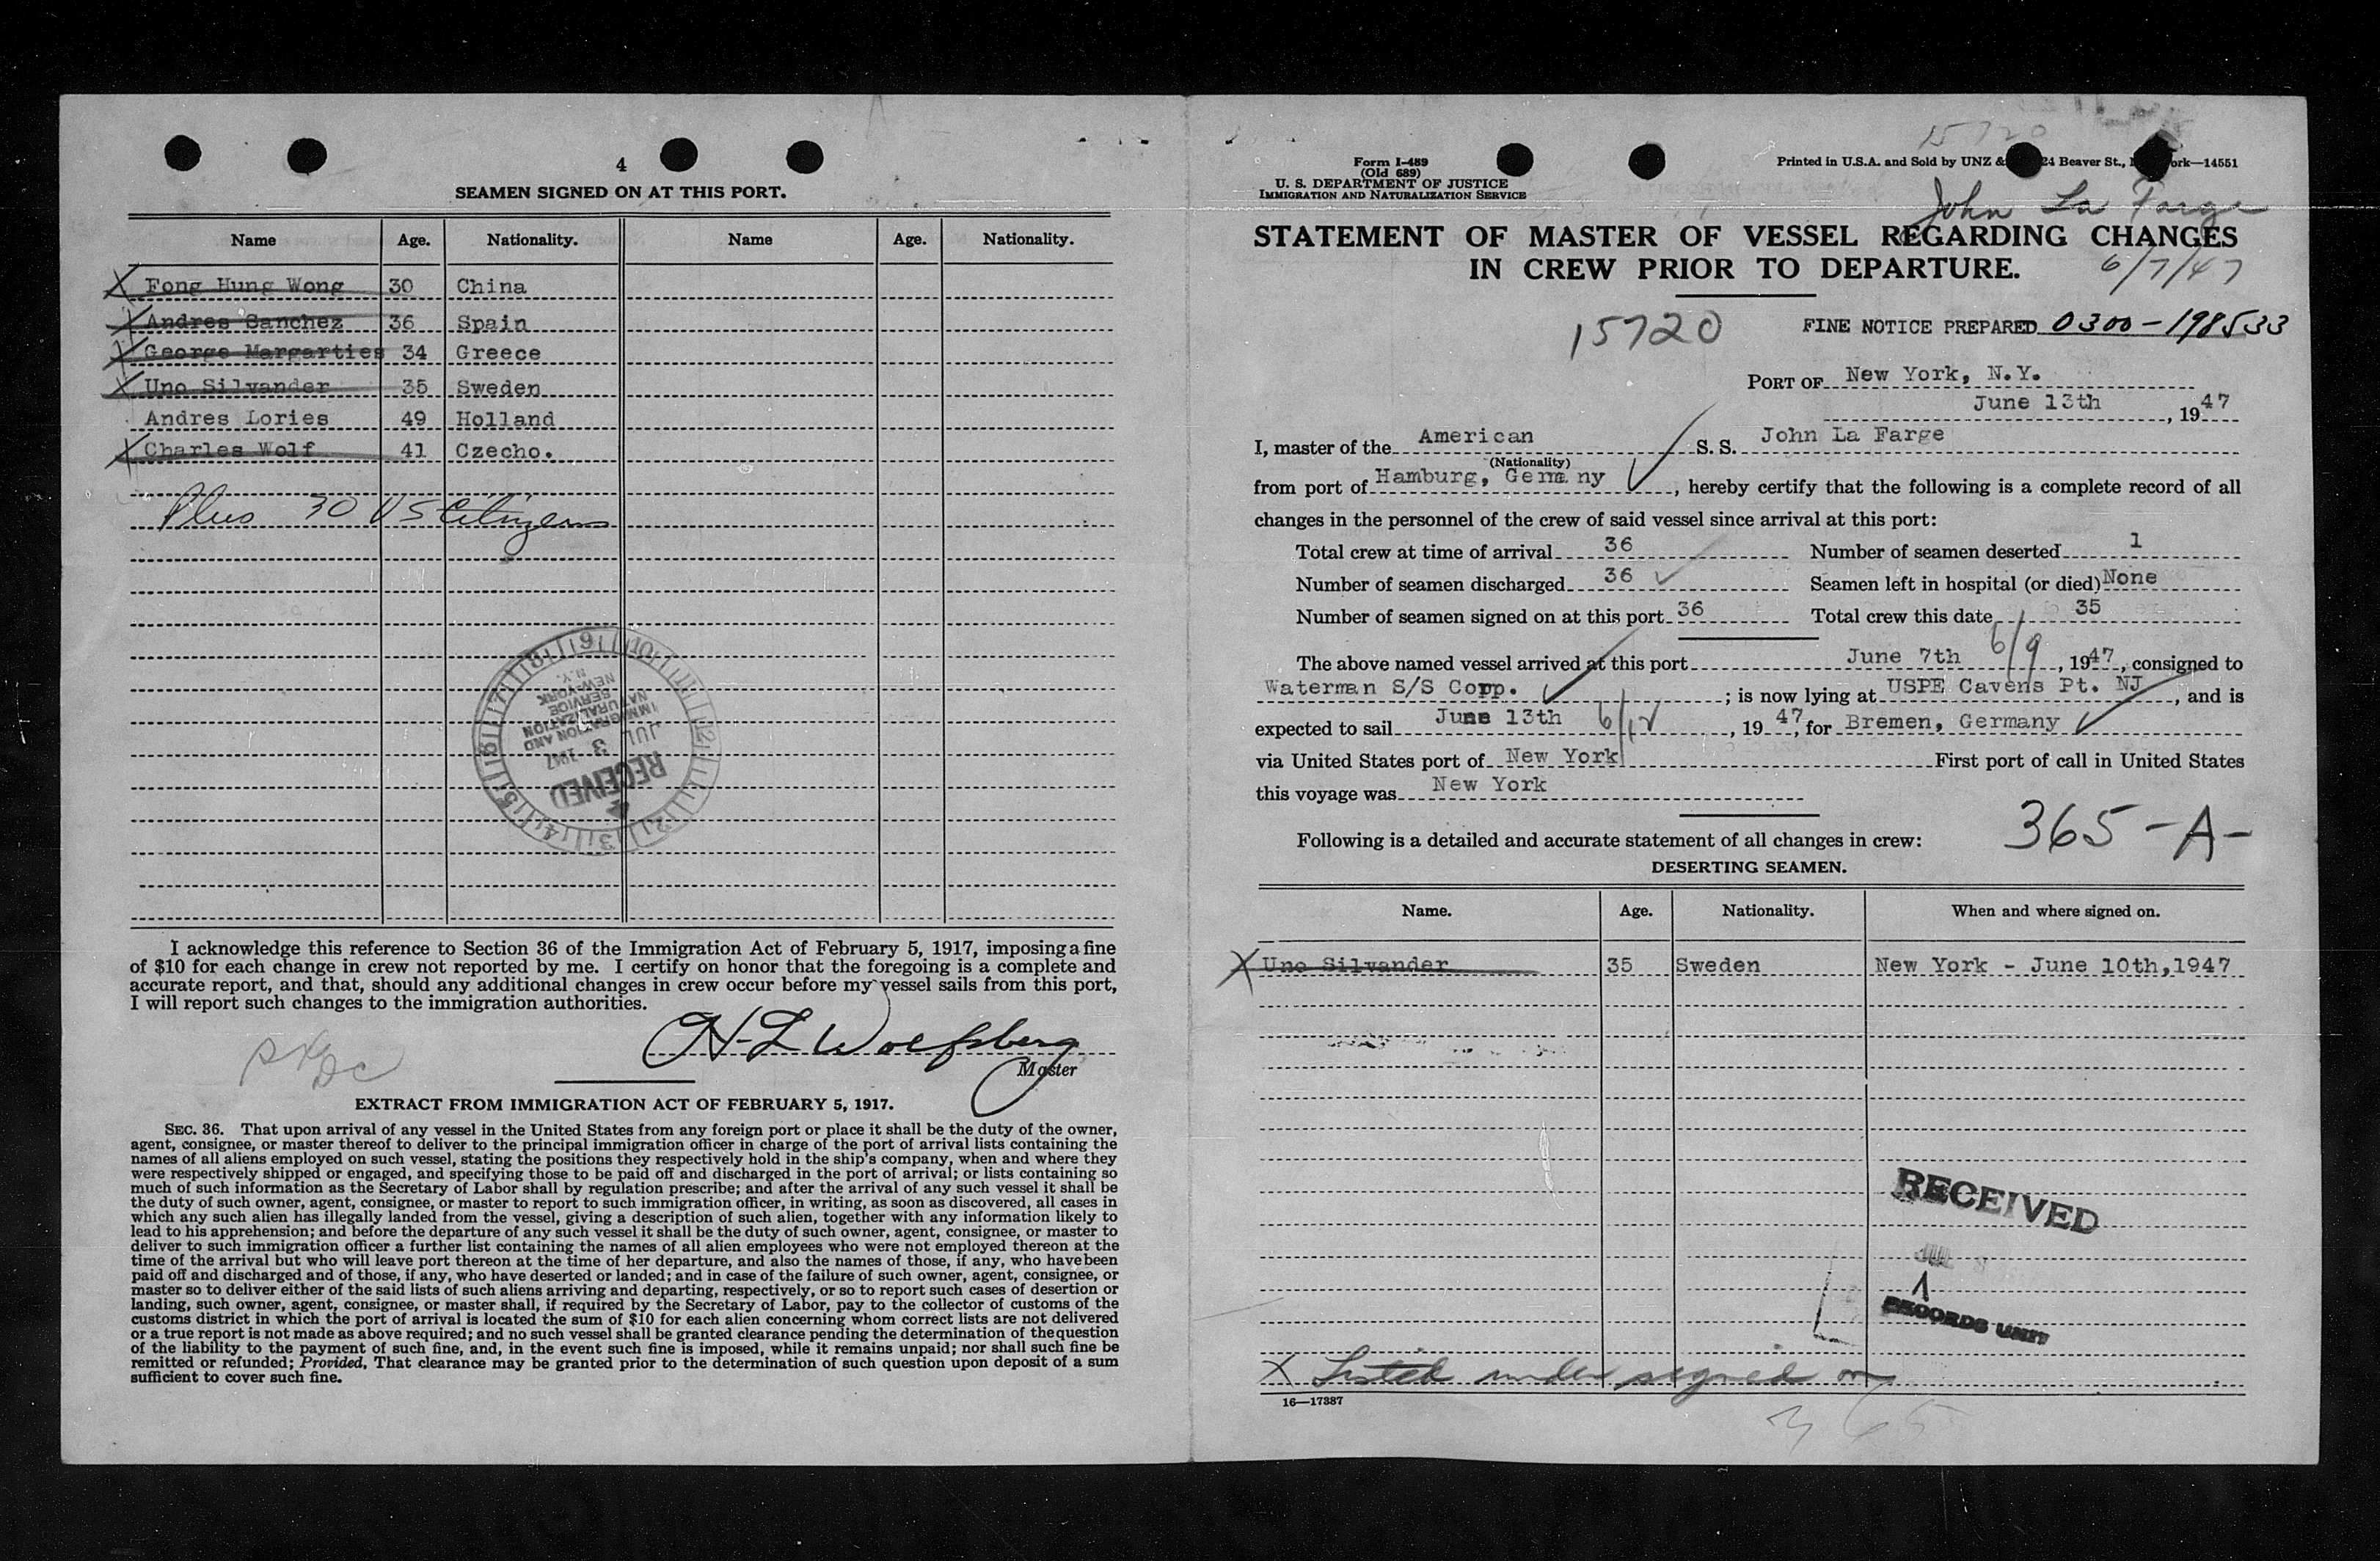 4
SEAMEN SIGNED ON AT THIS PORT.
Name Age. Nationality. Name Age. Nationality.
Fong Hung Wong 30 China
Andres Sanchez 36 Spain
George Margarties 34 Greece
Uno Silvander 35 Sweden
Andres Lories 49 Holland
Charles Wolf 41 Czecho.
Plus 30 US Citizens
IMMIGRATION AND
NATURALIZATION
SERVICE
NEW YORK
N.Y.
JUL 3 1947
RECEIVED
I acknowledge this reference to Section 36 of the Immigration Act of February 5, 1917, imposing a fine
of $10 for each change in crew not reported by me. I certify on honor that the foregoing is a complete and
accurate report, and that, should any additional changes in crew occur before my vessel sails from this port,
I will report such changes to the immigration authorities.
H-L Wolfsberg
Master
EXTRACT FROM IMMIGRATION ACT OF FEBRUARY 5, 1917.
SEC. 36. That upon arrival of any vessel in the United States from any foreign port or place it shall be the duty of the owner,
agent, consignee, or master thereof to deliver to the principal immigration officer in charge of the port of arrival lists containing the
names of all aliens employed on such vessel, stating the positions they respectively hold in the ship's company, when and where they
were respectively shipped or engaged, and specifying those to be paid off and discharged in the port of arrival; or lists containing so
much of such information as the Secretary of Labor shall by regulation prescribe; and after the arrival of any such vessel it shall be
the duty of such owner, agent, consignee, or master to report to such immigration officer, in writing, as soon as discovered, all cases in
which any such alien has illegally landed from the vessel, giving a description of such alien, together with any information likely to
lead to his apprehension; and before the departure of any such vessel it shall be the duty of such owner, agent, consignee, or master to
deliver to such immigration officer a further list containing the names of all alien employees who were not employed thereon at the
time of the arrival but who will leave port thereon at the time of her departure, and also the names of those, if any, who have been
paid off and discharged and of those, if any, who have deserted or landed; and in case of the failure of such owner, agent, consignee, or
master so to deliver either of the said lists of such aliens arriving and departing, respectively, or so to report such cases of desertion or
landing, such owner, agent, consignee, or master shall, if required by the Secretary of Labor, pay to the collector of customs of the
customs district in which the port of arrival is located the sum of $10 for each alien concerning whom correct lists are not delivered
or a true report is not made as above required; and no such vessel shall be granted clearance pending the determination of the question
of the liability to the payment of such fine, and, in the event such fine is imposed, while it remains unpaid; nor shall such fine be
remitted or refunded; Provided, That clearance may be granted prior to the determination of such question upon deposit of a sum
sufficient to cover such fine.
15720
Form I-489
(Old 689)
U. S. DEPARTMENT OF JUSTICE
IMMIGRATION AND NATURALIZATION SERVICE
Printed in U.S.A. and Sold by UNZ & 24 Beaver St., ork—14551
John La Farge
STATEMENT OF MASTER OF VESSEL REGARDING CHANGES
IN CREW PRIOR TO DEPARTURE.
6/7/47
15720
FINE NOTICE PREPARED 0300-198533
PORT OF New York, N.Y.
June 13th, 1947
I, master of the American S. S. John La Farge
(Nationality)
from port of Hamburg, Germany, hereby certify that the following is a complete record of all
changes in the personnel of the crew of said vessel since arrival at this port:
Total crew at time of arrival 36 Number of seamen deserted 1
Number of seamen discharged 36 Seamen left in hospital (or died) None
Number of seamen signed on at this port 36 Total crew this date 35
The above named vessel arrived at this port June 7th 6/9, 1947, consigned to
Waterman S/S Corp.; is now lying at USPE Cavens Pt. NJ, and is
expected to sail June 13th 6/12, 1947, for Bremen, Germany
via United States port of New York First port of call in United States
this voyage was New York
365-A-
Following is a detailed and accurate statement of all changes in crew:
DESERTING SEAMEN.
Name. Age. Nationality. When and where signed on.
Uno Silvander 35 Sweden New York - June 10th, 1947
RECEIVED
JUL
RECORDS UNIT
X Listed under signed on
16—17387
365